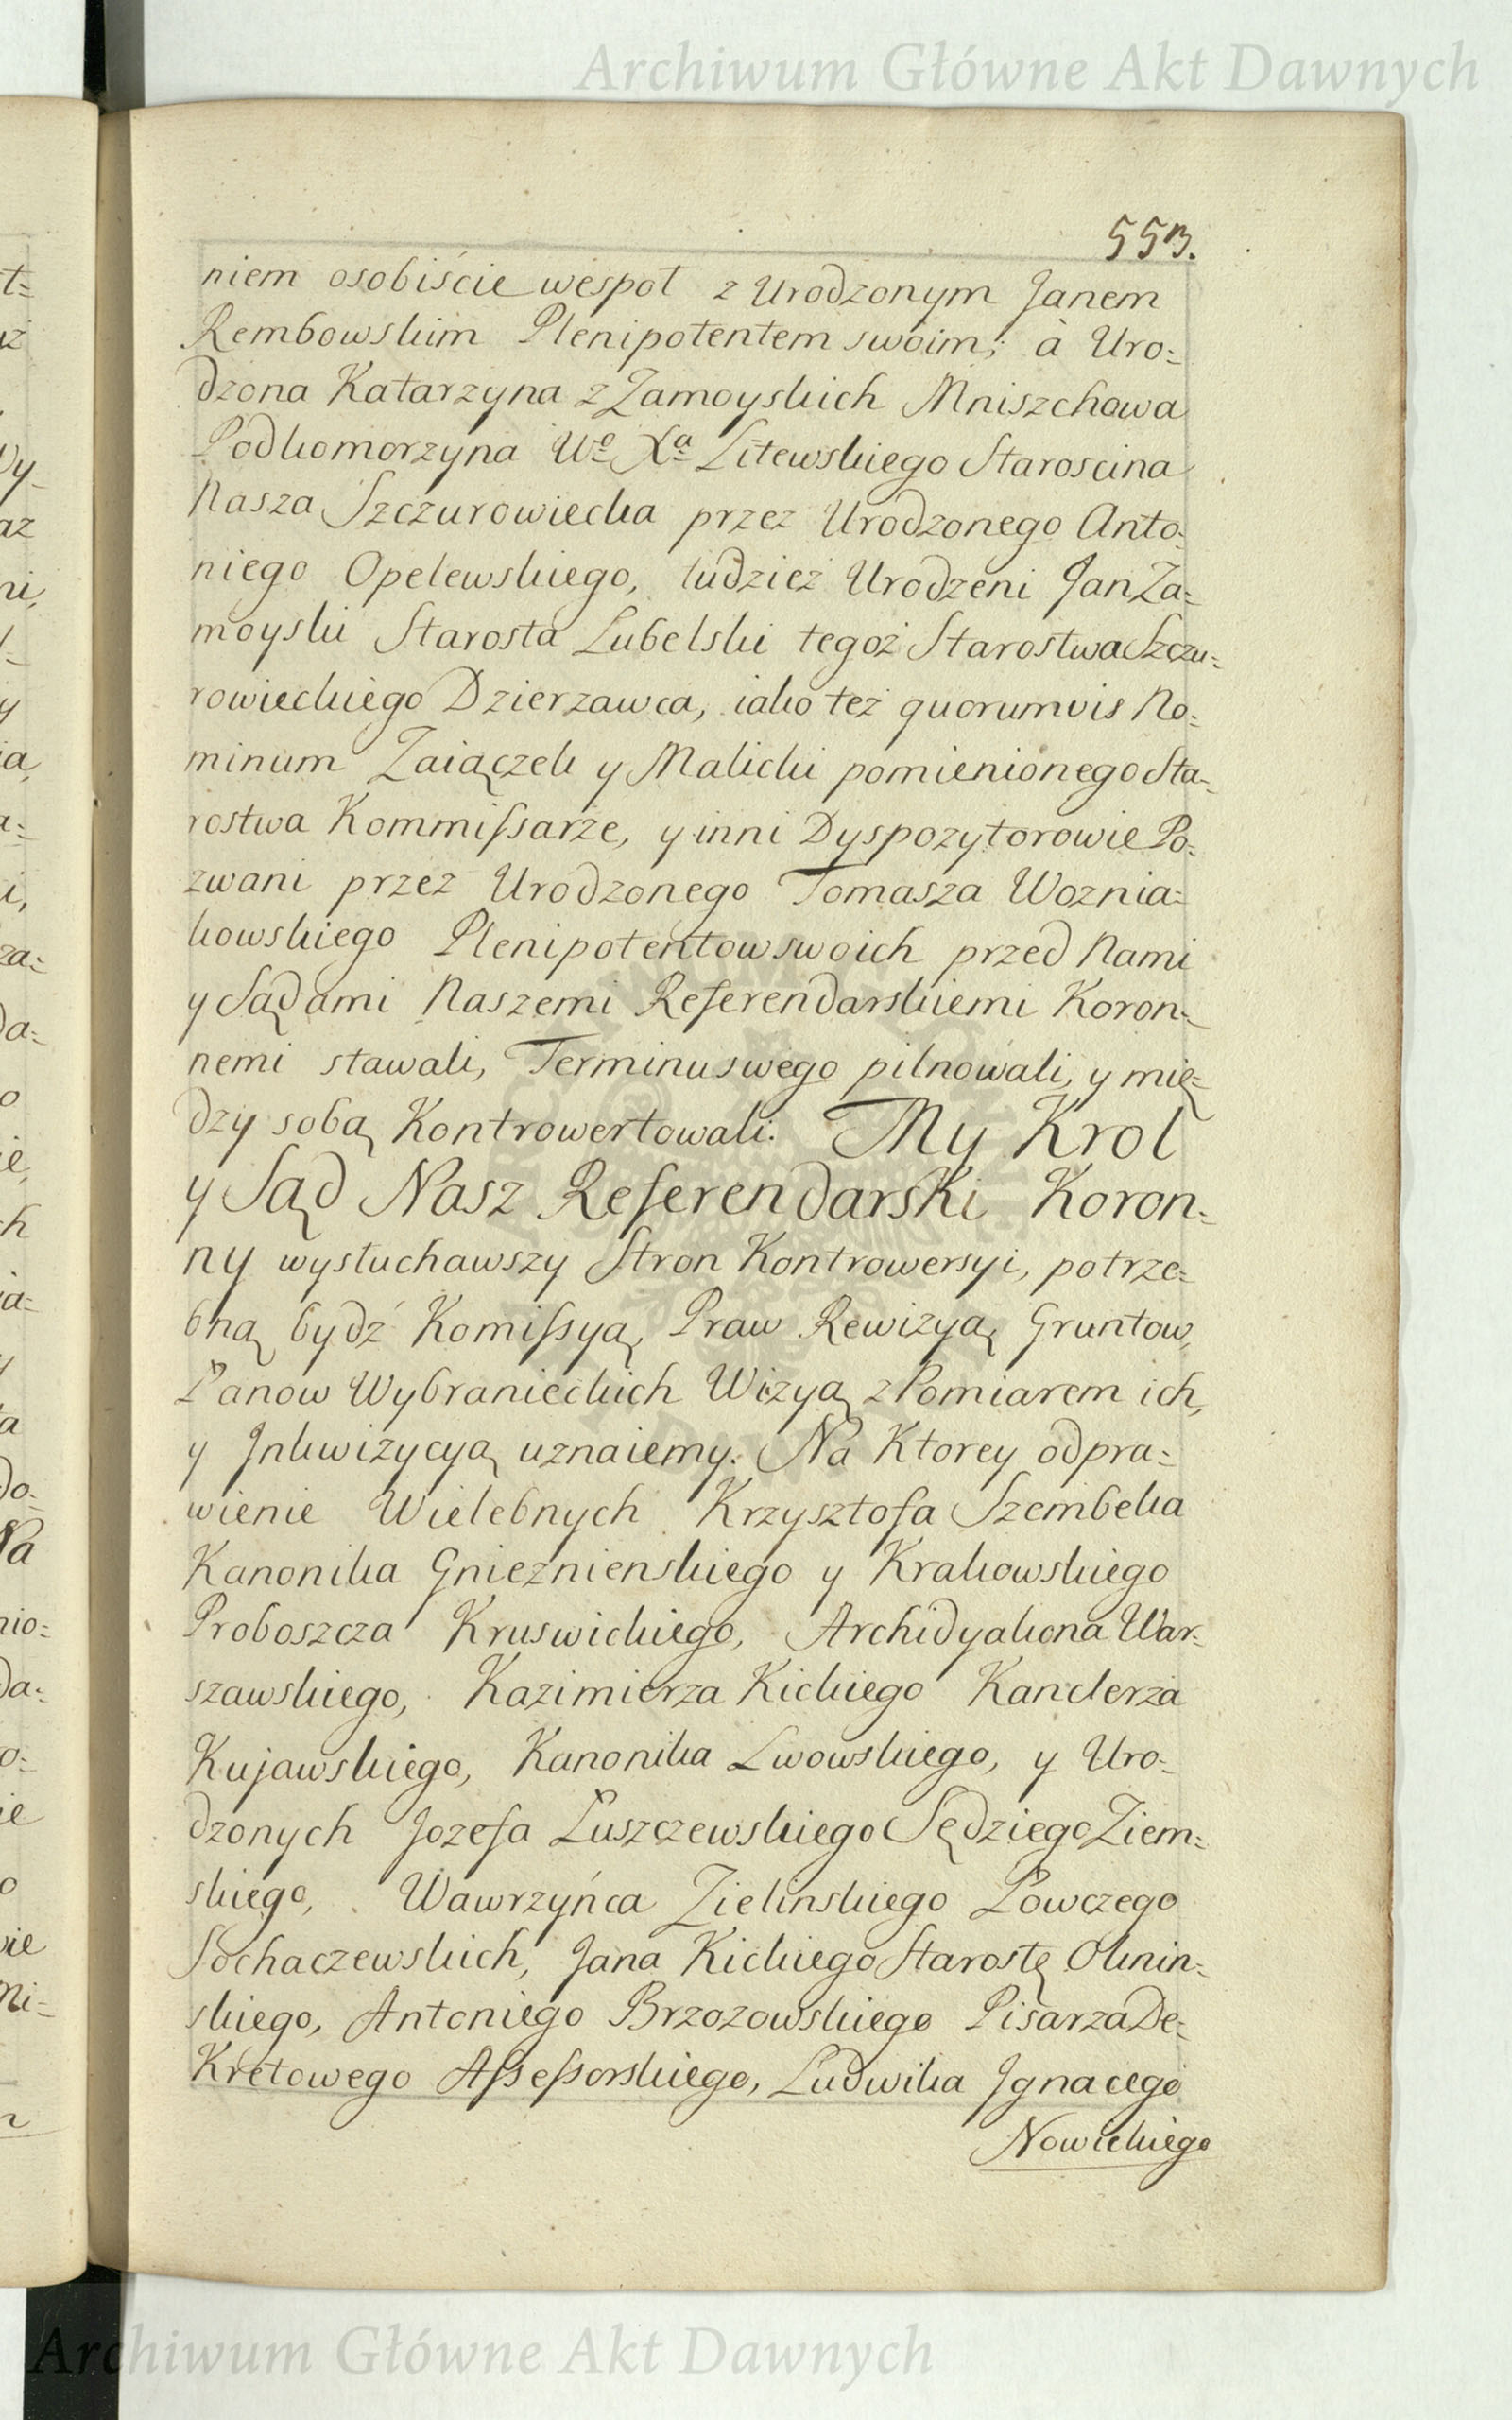 Archiwum Główne Akt Dawnych
553.
niem osobiście wespoł z Urodzonym Janem
Rembowskim Plenipotentem swoim; à Uro=
dzona Katarzyna z Zamoyskich Mniszchowa
Podkomorzyna Wº Xª Litewskiego Staroscina
Nasza Szczurowiecka przez Urodzonego Anto=
niego Opelewskiego, tudziez Urodzeni Jan Za=
moyski Starosta Lubelski tegoż Starostwa Szczu=
rowieckiego Dzierzawca, iako też quorumvis No=
minum Zaiączek y Malicki pomienionego Sta=
rostwa Kommissarze, y inni Dyspozytorowie Po=
zwani przez Urodzonego Tomasza Woznia=
kowskiego Plenipotentow swoich przed Nami
y Sądami Naszemi Referendarskiemi Koron=
nemi stawali, Terminu swego pilnowali, y mię=
dzy sobą Kontrowertowali. My Krol
y Sąd Nasz Referendarski Koron=
ny wysłuchawszy Stron Kontrowersyi, potrze=
bną bydź Komissyą, Praw Rewizyą, Gruntow,
Łanow Wybranieckich Wizyą z Pomiarem ich,
y Inkwizycyą uznaiemy. Na Ktorey odpra=
wienie Wielebnych Krzysztofa Szembeka
Kanonika Gnieznienskiego y Krakowskiego
Proboszcza Kruswickiego, Archidyakona War=
szawskiego, Kazimierza Kickiego Kanclerza
Kujawskiego, Kanonika Lwowskiego, y Uro=
dzonych Jozefa Łuszczewskiego Sędziego Ziem=
skiego, Wawrzyńca Zielinskiego Łowczego
Sochaczewskich, Jana Kickiego Starostę Oknin=
skiego, Antoniego Brzozowskiego Pisarza De=
Kretowego Assessorskiego, Ludwika Ignacego
Nowickiego
Archiwum Główne Akt Dawnych